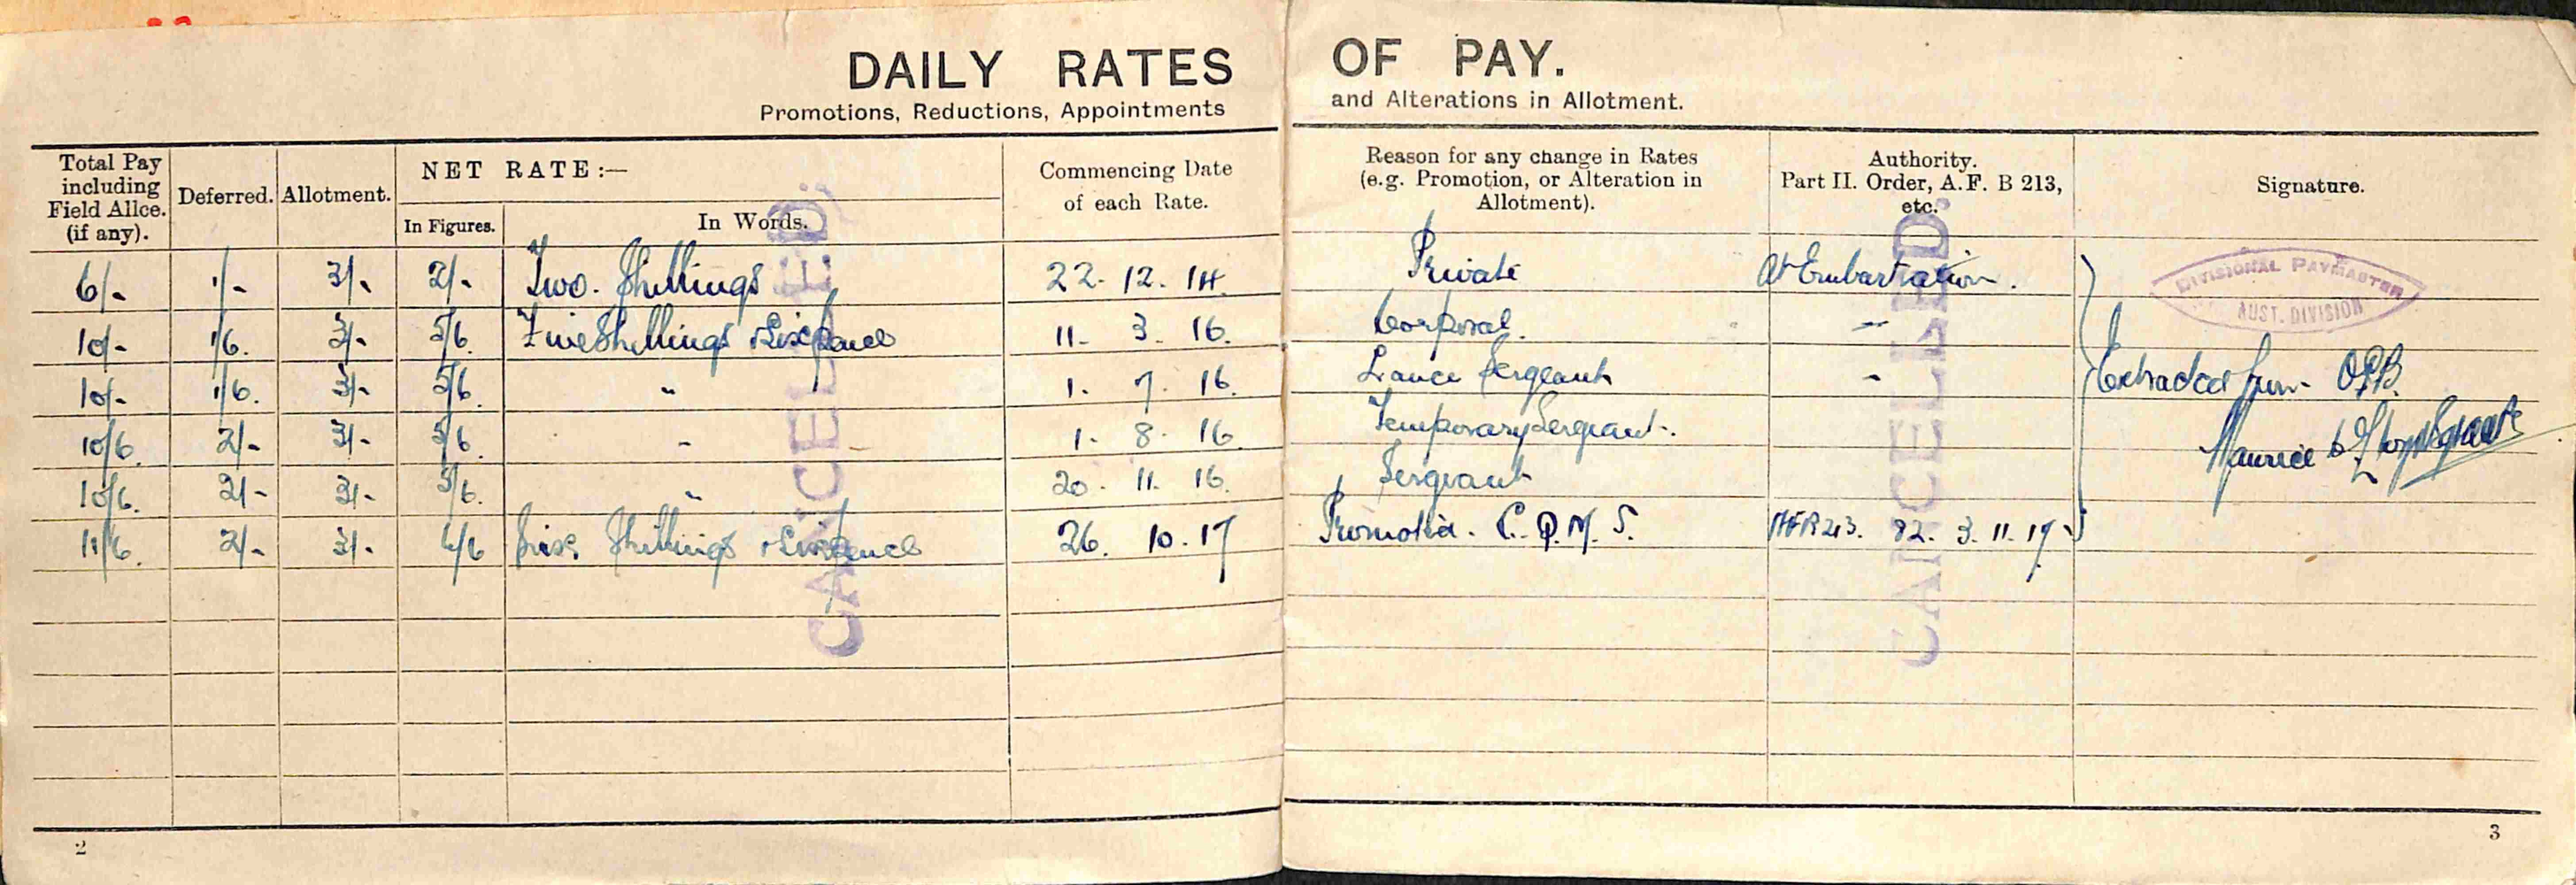 DAILY RATES OF PAY.
Promotions, Reductions, Appointments and Alterations in Allotment.
Total Pay including Field Allce. (if any).
Deferred.
Allotment.
NET RATE:—
In Figures.
In Words.
Commencing Date of each Rate.
Reason for any change in Rates (e.g. Promotion, or Alteration in Allotment).
Authority. Part II. Order, A.F. B 213, etc.
Signature.
6/- 1/- 3/- 2/- Two. Shillings 22. 12. 14 Private At Embarkation.
10/- 1/6. 3/- 5/6. Five Shillings & Sixpence 11. 3. 16. Corporal. "
10/- 1/6. 3/- 5/6. " 1. 7. 16. Lance Sergeant "
10/6. 2/- 3/- 5/6. " 1. 8. 16. Temporary Sergeant.
10/6. 2/- 3/- 5/6. " 20. 11. 16. Sergeant
11/6. 2/- 3/- 6/6 Six Shillings & Sixpence 26. 10. 17 Promoted. C.Q.M.S. 82. 3. 11. 17
DIVISIONAL PAYMASTER
AUST. DIVISION
Extracted from O.P.B.
Maurice
CANCELLED.
CANCELLED.
2
3